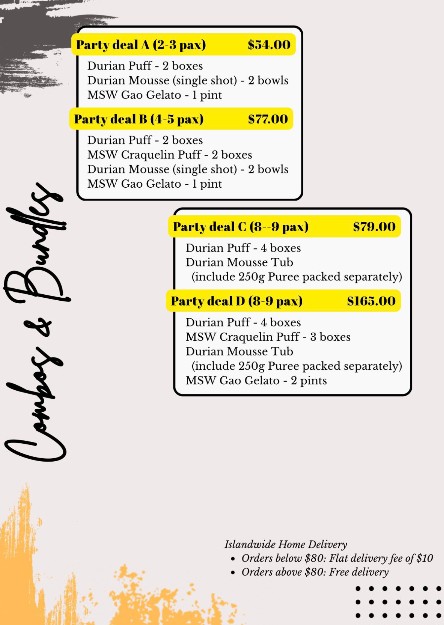 Combos & Bundles
Party deal A (2-3 pax) $54.00
Durian Puff - 2 boxes
Durian Mousse (single shot) - 2 bowls
MSW Gao Gelato - 1 pint
Party deal B (4-5 pax) $77.00
Durian Puff - 2 boxes
MSW Craquelin Puff - 2 boxes
Durian Mousse (single shot) - 2 bowls
MSW Gao Gelato - 1 pint
Party deal C (8--9 pax) $79.00
Durian Puff - 4 boxes
Durian Mousse Tub
(include 250g Puree packed separately)
Party deal D (8-9 pax) $165.00
Durian Puff - 4 boxes
MSW Craquelin Puff - 3 boxes
Durian Mousse Tub
(include 250g Puree packed separately)
MSW Gao Gelato - 2 pints
Islandwide Home Delivery
• Orders below $80: Flat delivery fee of $10
• Orders above $80: Free delivery